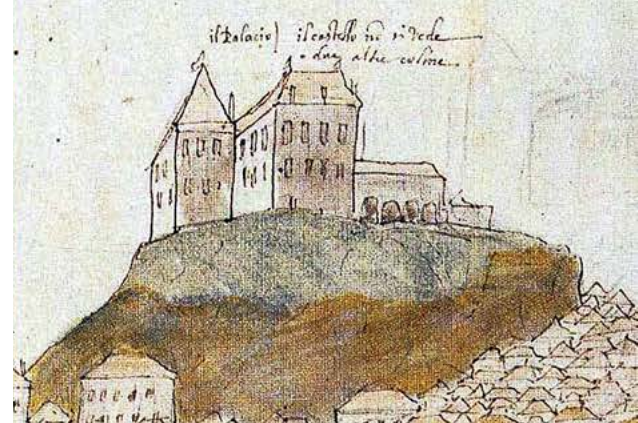 il Palacio) il castello nõ si vede
due altre coline